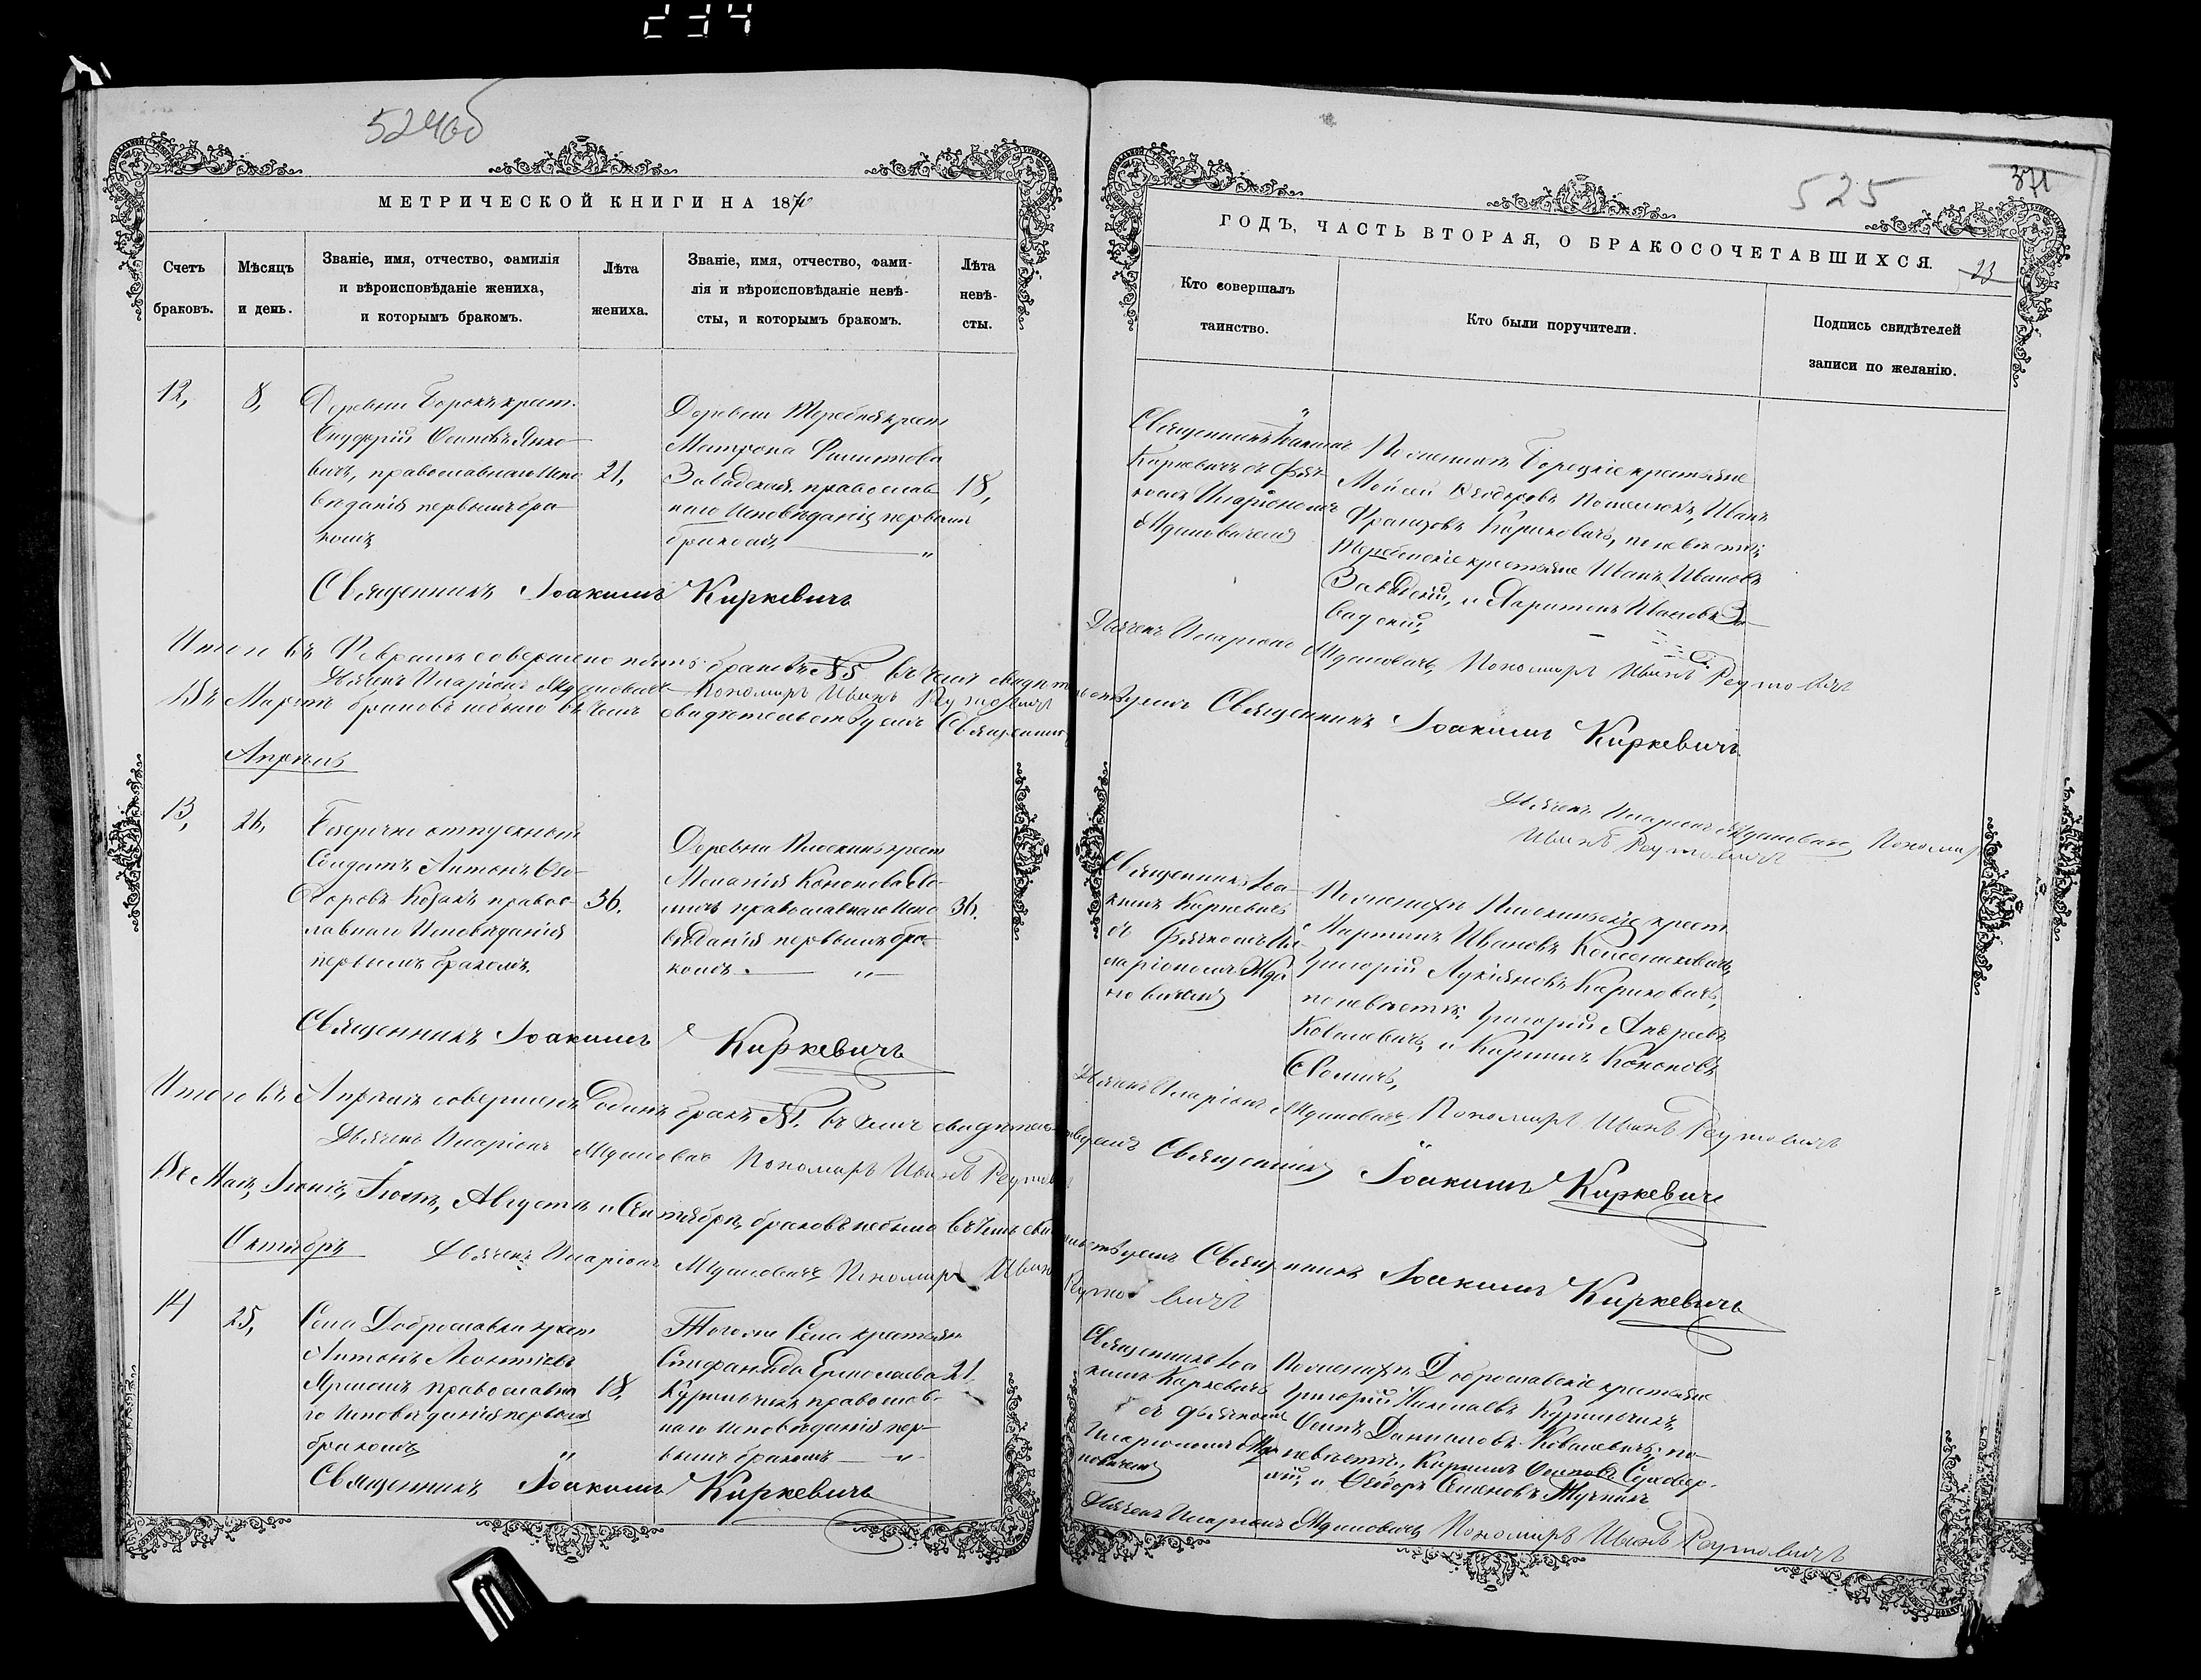 234
524об
МЕТРИЧЕСКОЙ КНИГИ НА 1870
Счетъ
браковъ.
Мѣсяцъ
и день.
Званіе, имя, отчество, фамилія
и вѣроисповѣданіе жениха,
и которымъ бракомъ.
Лѣта
жениха.
Званіе, имя, отчество, фами-
лія и вѣроисповѣданіе невѣ-
сты, и которымъ бракомъ.
Лѣта
невѣ-
сты.
12,
8,
Деревни Борокъ крест.
Онуфрій Осиповъ Янко-
вичъ, православнаго испо
вѣданія первымъ бра-
комъ
21,
Деревни Теребня крест
Матрона Филиппова
Завадская православ
наго исповѣданія первымъ
бракомъ
18,
Священникъ Іоакимъ Киркевичъ
Итого въ Февралѣ совершено пять браковъ №5 въ чемъ свидѣтель
Дьячекъ Иларіонъ Ждановичъ Пономарь Иванъ Реутовичъ
Въ Мартѣ браковъ небыло въ чемъ свидѣтельствуемъ Священникъ
Апрѣль
13,
26,
Безсрочно отпускный
Солдатъ Антонъ Ѳео-
доровъ Козакъ правос-
лавнаго Исповѣданія
первымъ бракомъ.
36.
Деревни Плоскинь крест
Меланія Кононова
православнаго Испо
вѣданія первымъ бра-
комъ.
36.
Священникъ Іоакимъ Киркевичъ
Итого въ Апрѣлѣ совершенъ одинъ бракъ №1. въ чемъ свидѣтель
Дьячекъ Иларіонъ Ждановичъ Пономарь Иванъ Реутови
Въ Маѣ, Іюнѣ, Іюлѣ, Августѣ и Сентябрѣ, браковъ небыло въ чемъ свид
Октябрь
Дьячекъ Иларіонъ Ждановичъ Пономарь Иванъ
14
25,
Села Доброславки крест
Антонъ Леонтіевъ
православна
го исповѣданія первымъ
бракомъ
18,
Тогоже Села крестьян
Стефанида Ермолаева
Курильчикъ православ-
наго исповѣданія пер-
вымъ бракомъ
21
Священникъ Іоакимъ Киркевичъ
371
525
ГОДЪ, ЧАСТЬ ВТОРАЯ, О БРАКОСОЧЕТАВШИХСЯ.
23
Кто совершалъ
таинство.
Кто были поручители.
Подпись свидѣтелей
записи по желанію.
Священникъ Іоакимъ
Киркевичъ съ дьяч-
комъ Иларіономъ
Ждановичемъ
По женихѣ Борецкіе крестьяне
Мойсей Ѳеодоровъ Иванъ
Францовъ Кориковичъ, по невѣстѣ:
Теребенскіе крестьяне Иванъ Ивановъ
Завадскій, и Харитонъ Ивановъ За-
вадскій,
Дьячекъ Иларіонъ Ждановичъ, Пономарь Иванъ Реутовичъ
ствуемъ Священникъ Іоакимъ Киркевичъ
Дьячекъ Иларіонъ Ждановичъ Пономарь
Иванъ Реутовичъ
Священникъ Іоа-
кимъ Киркевичъ
съ дьячкомъ Ил-
аріономъ Жда
новичемъ
По женихѣ Плоскинскіе крест
Мартинъ Ивановъ
Григорій Лукіяновъ Кориковичъ,
по невѣстѣ: Григорій Андреевъ
Ковалевичъ, и Кириллъ Кононовъ
Дьячекъ Иларіонъ Ждановичъ, Пономарь Иванъ Реутовичъ
ствуемъ Священникъ Іоакимъ Киркевичъ
ьствуемъ Священникъ Іоакимъ Киркевичъ
Реутовичъ
Священникъ Іоа
кимъ Киркевичъ
съ дьячкомъ
Иларіономъ Жда
новичемъ
По женихѣ Доброславскіе крестьяне
Григорій Николаевъ Курильчикъ,
Осипъ Даниловъ Ковалевичъ; по
невѣстѣ, Кириллъ Осиповъ
и Ѳедоръ Семеновъ
Дьячекъ Иларіонъ Ждановичъ Пономарь Иванъ Реутовичъ